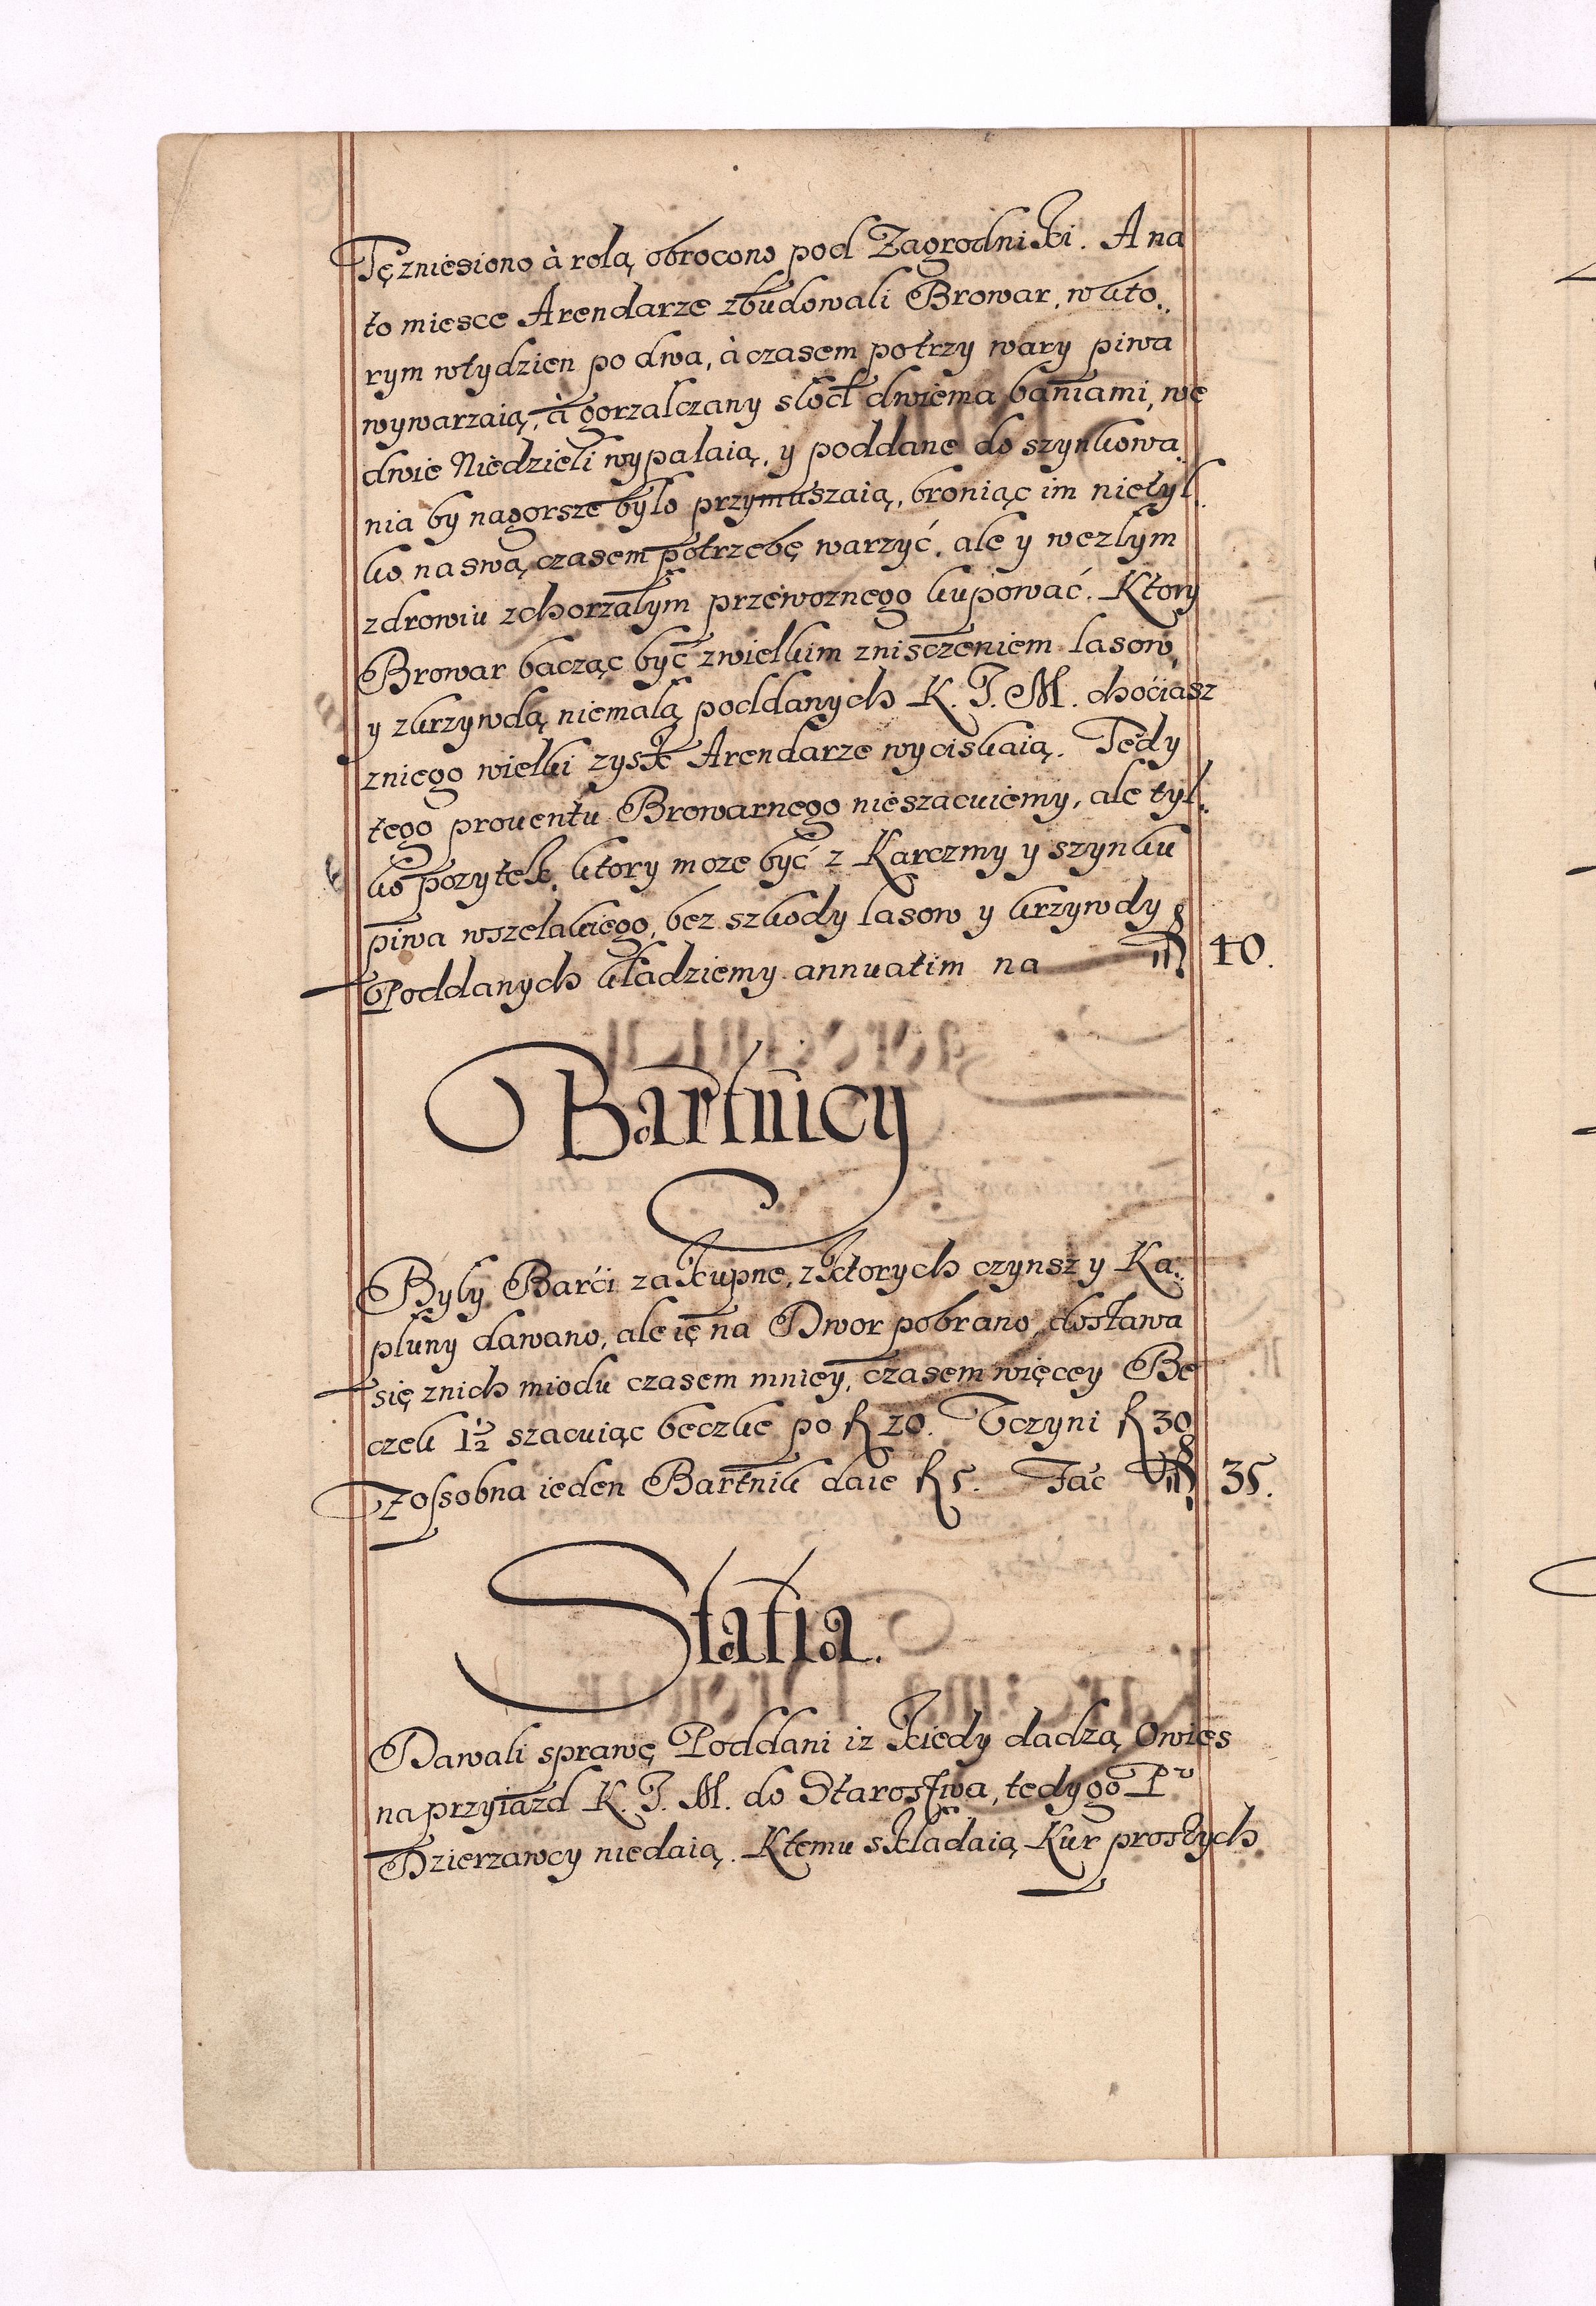 Tę zniesiono à rolą obrocono pod Zagrodniki. A na
to miesce Arendarze zbudowali Browar, w kto..
rym w tydzien po dwa, à czasem po trzy wary piwa
wywarzaią, à gorzalczany słod dwiema baniami, we
dwie Niedzieli wypalaią, y poddane do szynkowa.
nia by nagorsze było przymuszaią, broniąc im nietyl.
ko na swą czasem potrzebę warzyć, ale y wezłym
zdrowiu zchorzałym przewoznego kupować. Ktory
Browar bacząc być zwielkim znisczeniem lasow,
y zkrzywdą niemalą poddanych K. J. M. choćiasz
zniego wielki zysk Arendarze wyciskaią. Tedy
tego prouentu Browarnego nieszacuiemy, ale tyl.
ko pozytek, ktory moze być z Karczmy y szynku
piwa wszelakiego, bez szkody lasow y krzywdy
Poddanych kładziemy annuatim na 10.
Bartnicy
Były Barći zakupne, z ktorych czynsz y Ka..
płuny dawano, ale ię na Dwor pobrano, dostawa
się znich miodu czasem mniey, czasem więcey Be
czek 1½ szacuiąc beczke po f 20. Uczyni f 30
Z ossobna ieden Bartnik daie f 5. Fac 35.
Statia.
Dawali sprawę Poddani iz kiedy dadzą Owies
na przyiazd K. J. M. do Starostwa, tedy go Pu
Dzierzawcy niedaią. Ktemu składaią Kur prostych